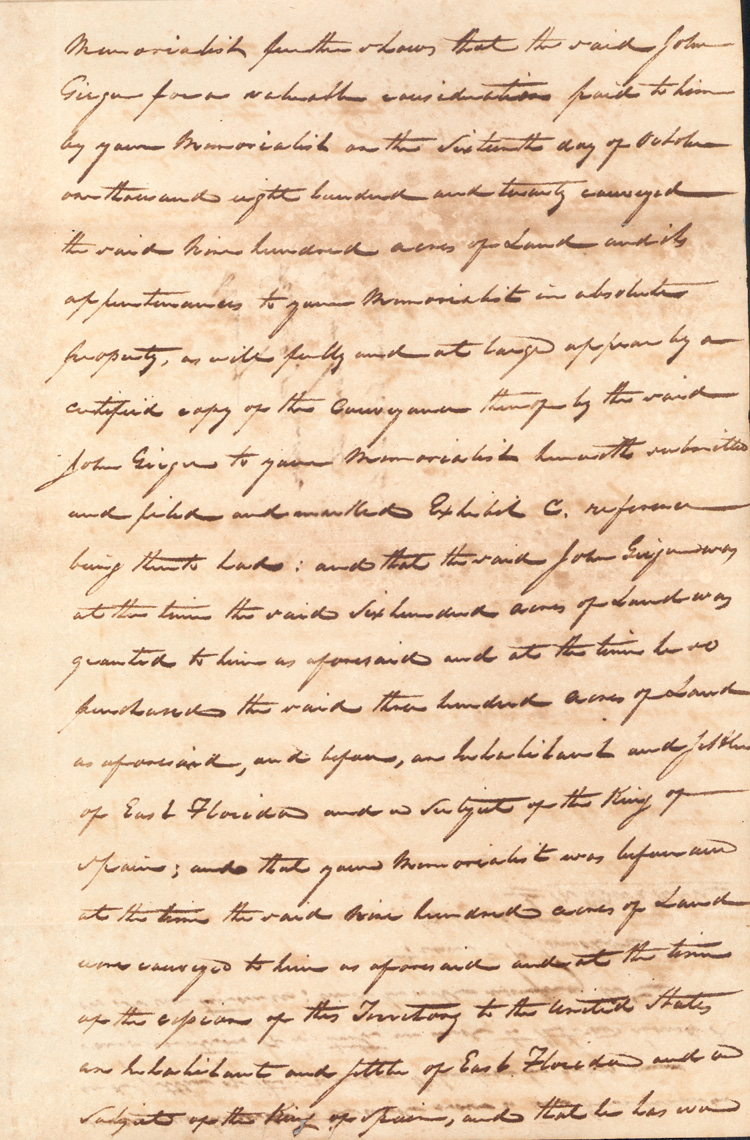 Memorialist further shows that the said John
Geiger for a valuable consideration paid to him
by your Memorialist on the Sixteenth day of October
one thousand eight hundred and twenty conveyed
the said Nine hundred acres of Land and its
appurtenances to your Memorialist in absolute
property, as will fully and at large appear by a
certified copy of the Conveyance thereof by the said
John Geiger to your Memorialist herewith submitted
and filed and marked Exhibit C. reference
being thereto had: and that the said John Geiger was
at the time the said Six hundred acres of Land was
granted to him as aforesaid and at the time he so
purchased the said three hundred acres of Land
as aforesaid, and before, an Inhabitant and Settler
of East Florida and a Subject of the King of
Spain; and that your Memorialist was before and
at the time the said Nine hundred acres of Land
were conveyed to him as aforesaid and at the time
of the cession of this Territory to the United States
an Inhabitant and Settler of East Florida and a
Subject of the King of Spain, and that he has